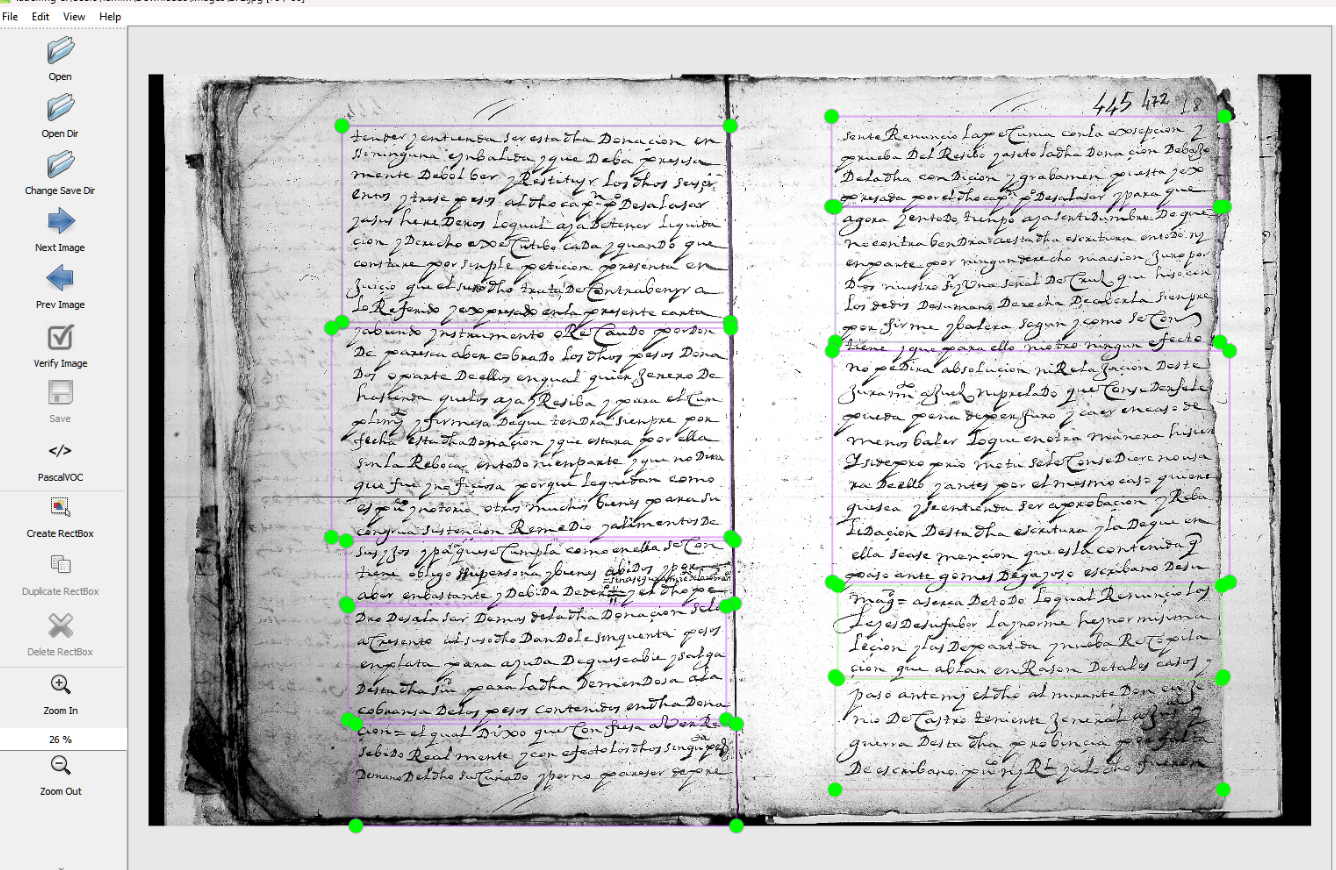 File Edit View Help
Open
Open Dir
Change Save Dir
Next Image
Prev Image
Verify Image
Save
</>
PascalVOC
Create RectBox
Duplicate RectBox
Delete RectBox
Zoom In
26 %
Zoom Out
tender y entienda ser esta dha Donacion en
ninguna ynbalida y que Deba
mente Debolber y Restituyr los dhos
entos y trese pesos al dho capn po Desalasar
y asus herederos loqual aja Detener liquida
cion y Derecho executibo cada y quando que
constare por simple peticion presenta en
Juicio que el suso dho trata De Contrabenyr a
lo Referido y expresado en la presente carta
y abiendo ynstrumento o Recaudo por don
De paresca aber cobrado los dhos pesos Dona
Dos o parte De ellos en qual quier Jenero De
hasienda que los aja y Resiba y para el Cum
plimo y firmesa De que tendra siempre por
fecha esta dha Donacion y que estara por ella
sin la Rebocar en todo ni en parte y que no Dira
que fue porque le quedan como
es puco y notorio otros muchos bienes para su
congrua sustencion Remedio y alimentos De
sus yjos y pa que se Cumpla como en ella se Con
tiene obligo su persona y bienes abidos y por
aber en bastante y Debida y el dho pe
Dro Desalasar Demas dela dha Donacion selo
al suso dho Dandole sinquenta pesos
en plata para ajuda De que se abie y salga
Desta dha para la dha Demendosa ala
cobransa Delos pesos contenidos en dha Dona
cion = el qual Dixo que Confiesa aber Re
sebido Real mente y con efecto los dhos
De mano Del dho su Cuñado y por no pareser de pre
445 472 18
sente Renuncio la pecunia con la exsepcion y
prueba Del Resibo y aseto la dha Donacion Debajo
Dela dha condicion y grabamen puesta y ex
presada por el dho capn po Desalasar y para que
agora y en todo tiempo aja sertidumbre De que
no contrabendra a esta dha escritura en todo ny
en parte por ningun derecho ni acsion Juro por
Dios nuestro Sr y Una señal De Cruz que hiso con
los dedos Desu mano Derecha De aberla siempre
por firme y balera segun y como se Con
tiene y que para ello no
no pedira absolucion ni Relajacion Deste
Juramto a Juez ni prelado que Conseder sele
pueda pena de perjuro y caer en caso de
menos baler
Y si de proprio motu sele Consediere no usa
ra De ello y antes por el mesmo caso quiere
que sea y se entienda ser aprobacion y Reba
lidacion Desta dha escritura y la De que en
ella se ase mencion que es la contenida q
paso ante gomes Degajoso escribano Desu
magd = aserca De todo loqual Renuncio los
lejes Desu fabor la
leçion y las De partida y nueba Recopila
cion que ablan en Rason De tales casos y
paso ante my el dho al mirante Don
nio De Castro teniente Jeneral
guerra Desta dha probincia por falta
De escribano puco ny Rl y a lo dho fueron